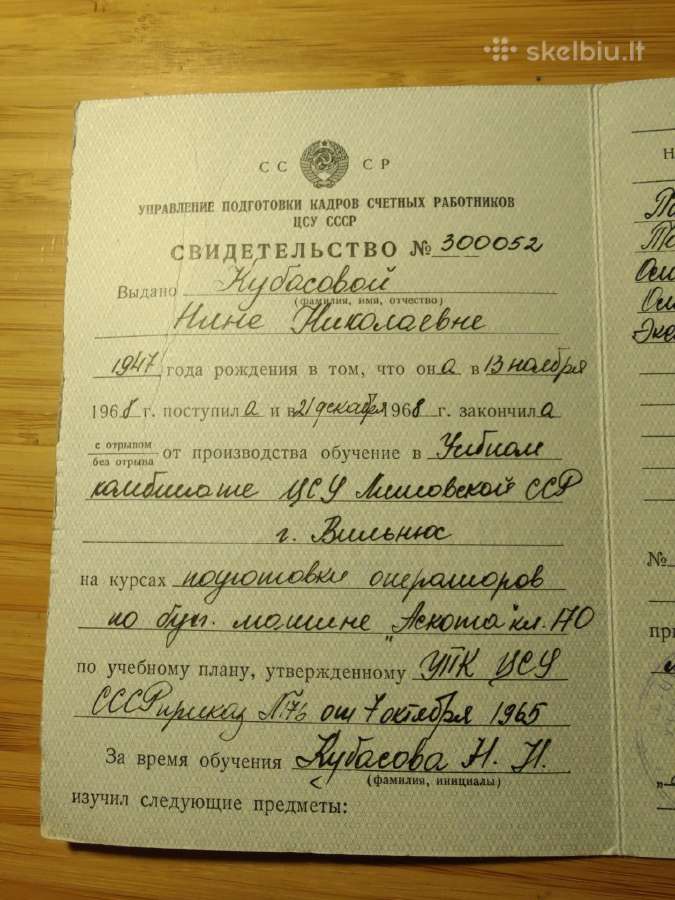 skelbiu.lt
СС СР
УПРАВЛЕНИЕ ПОДГОТОВКИ КАДРОВ СЧЕТНЫХ РАБОТНИКОВ
ЦСУ СССР
СВИДЕТЕЛЬСТВО № 300052
Выдано Кубасовой
(фамилия, имя, отчество)
Нине Николаевне
1947 года рождения в том, что она в 13 ноября
1968 г. поступила и в 21 декабря 1968 г. закончила
с отрывом
без отрыва от производства обучение в Учебном
комбинате ЦСУ Литовской ССР
г. Вильнюс
на курсах подготовки операторов
по бух. машине "Аскота" кл. 170
по учебному плану, утвержденному УПК ЦСУ
СССР приказ № 76 от 7 октября 1965
За время обучения Кубасова Н. Н.
(фамилия, инициалы)
изучил следующие предметы:
№